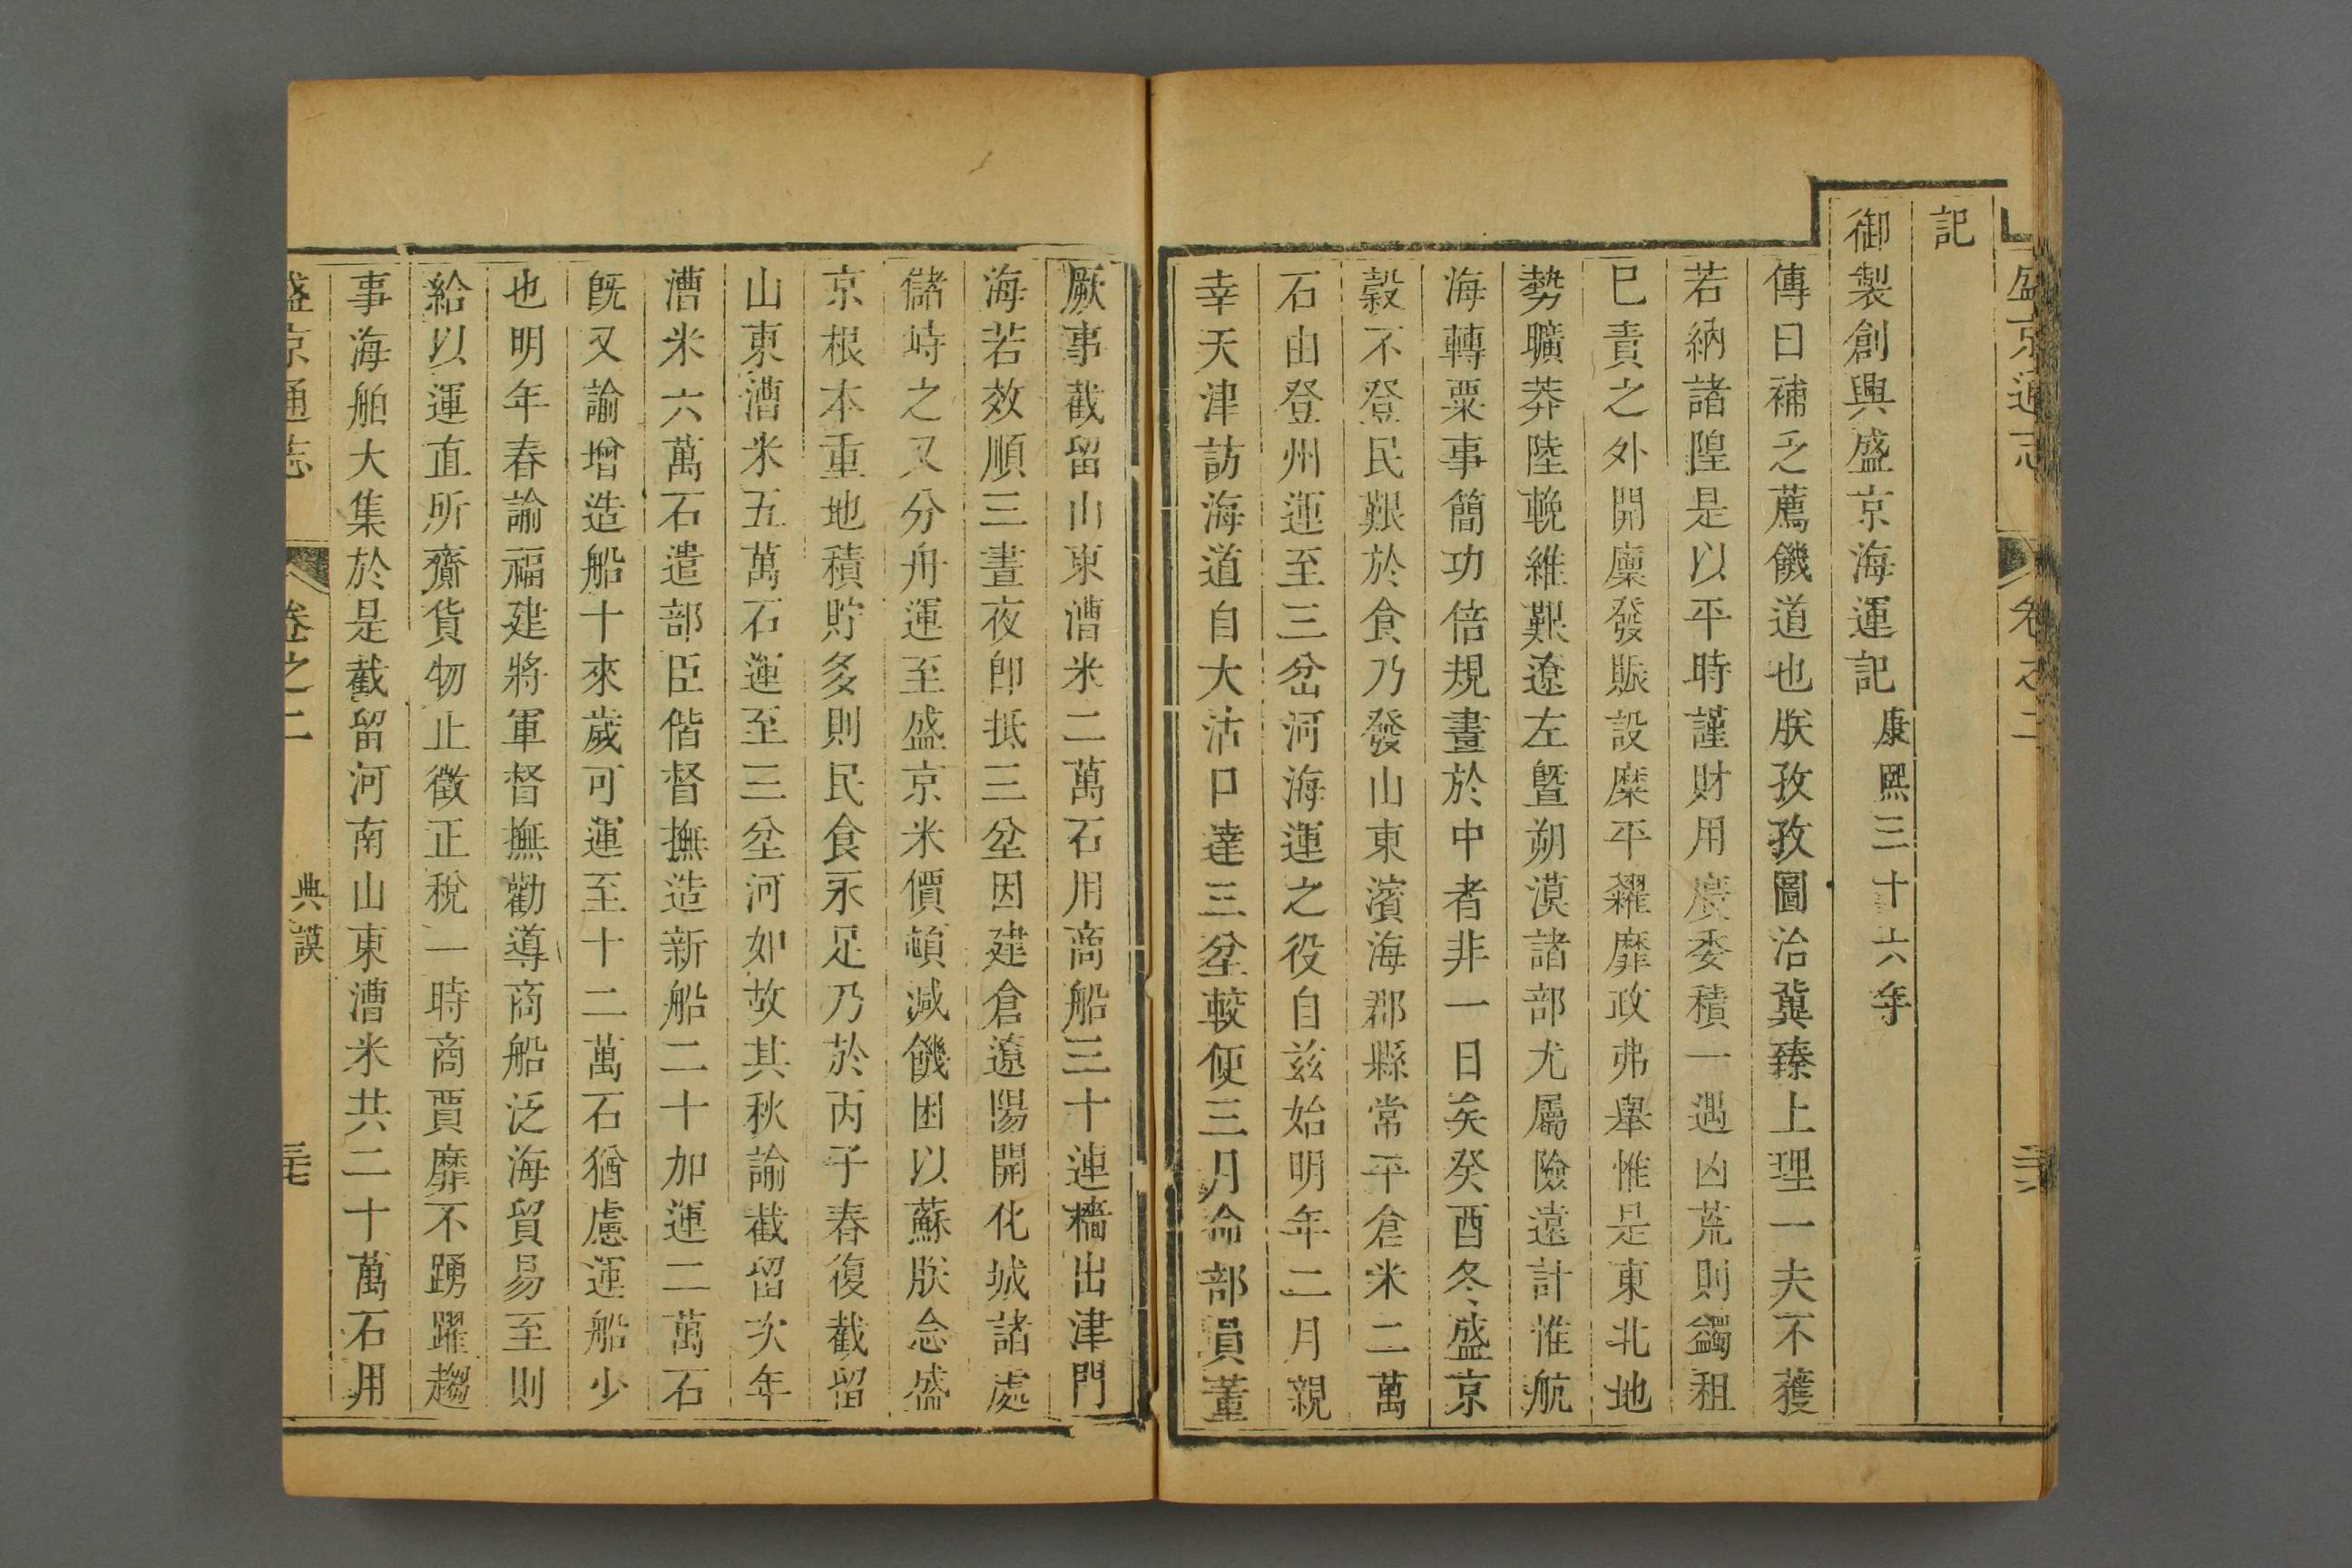 盛京通志 卷之二
記
御製創興盛京海運記 康熙三十六年
傳曰補乏薦饑道也朕孜孜圖治冀臻上理一夫不獲
若納諸隍是以平時謹財用廣委積一遇凶荒則蠲租
巳責之外開廩發賑設糜平糶靡政弗舉惟是東北地
勢曠莽陸輓維艱遼左暨朔漠諸部尤屬險遠計惟航
海轉粟事簡功倍規畫於中者非一日矣癸酉冬盛京
穀不登民艱於食乃發山東濱海郡縣常平倉米二萬
石由登州運至三岔河海運之役自兹始明年二月親
幸天津訪海道自大沽口達三坌較便三月命部員董
厥事截留山東漕米二萬石用商船三十連檣出津門
海若效順三晝夜即抵三坌因建倉遼陽開化城諸處
儲峙之又分舟運至盛京米價頓減饑困以蘇朕念盛
京根本重地積貯多則民食永足乃於丙子春復截留
山東漕米五萬石運至三坌河如故其秋諭截留次年
漕米六萬石遣部臣偕督撫造新船二十加運二萬石
旣又諭增造船十來歲可運至十二萬石猶慮運船少
也明年春諭福建將軍督撫勸導商船泛海貿易至則
給以運直所齎貨物止徵正稅一時商賈靡不踴躍趨
事海舶大集於是截留河南山東漕米共二十萬石用
盛京通志 卷之二 典謨 二七